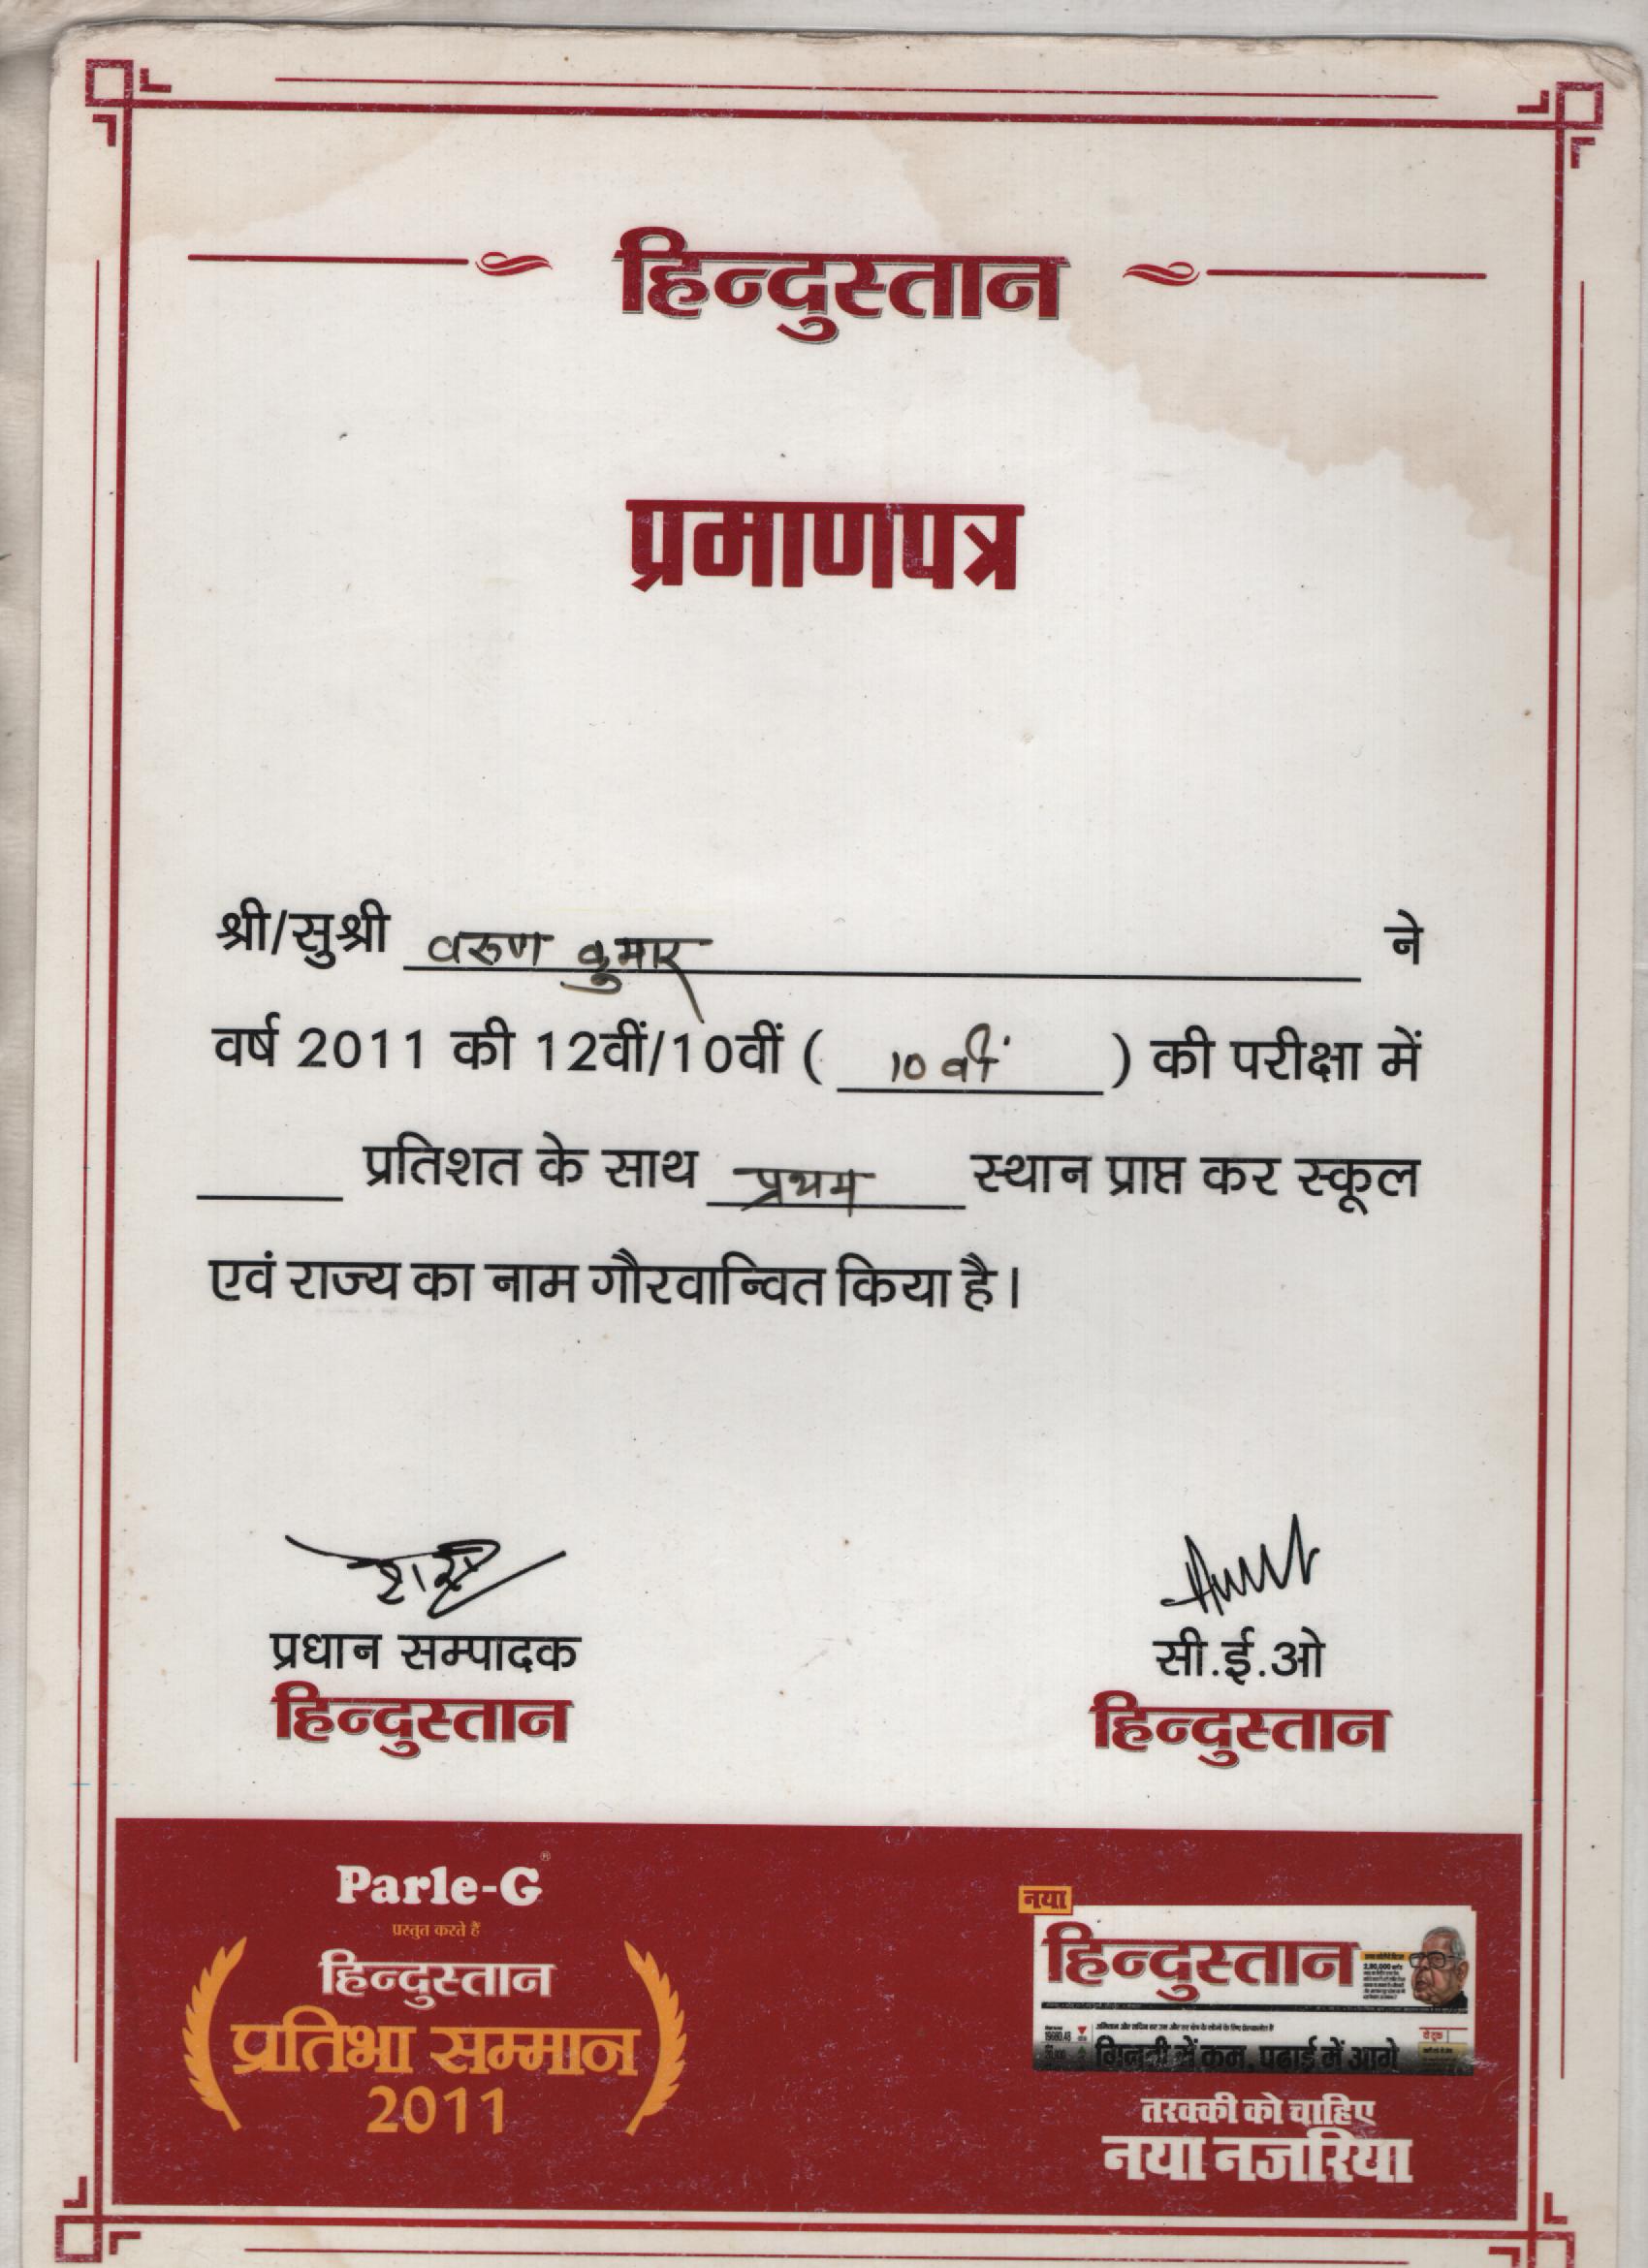 हिन्दुस्तान
प्रमाणपत्र
श्री/सुश्री वरुण कुमार ने
वर्ष 2011 की 12वीं/10वीं ( 10 वीं ) की परीक्षा में
____ प्रतिशत के साथ प्रथम स्थान प्राप्त कर स्कूल
एवं राज्य का नाम गौरवान्वित किया है।
प्रधान सम्पादक
हिन्दुस्तान
सी.ई.ओ
हिन्दुस्तान
Parle-G®
प्रस्तुत करते हैं
हिन्दुस्तान
प्रतिभा सम्मान
2011
नया
हिन्दुस्तान
2,80,000
गिनती में कम, पढ़ाई में आगे
तरक्की को चाहिए
नया नजरिया